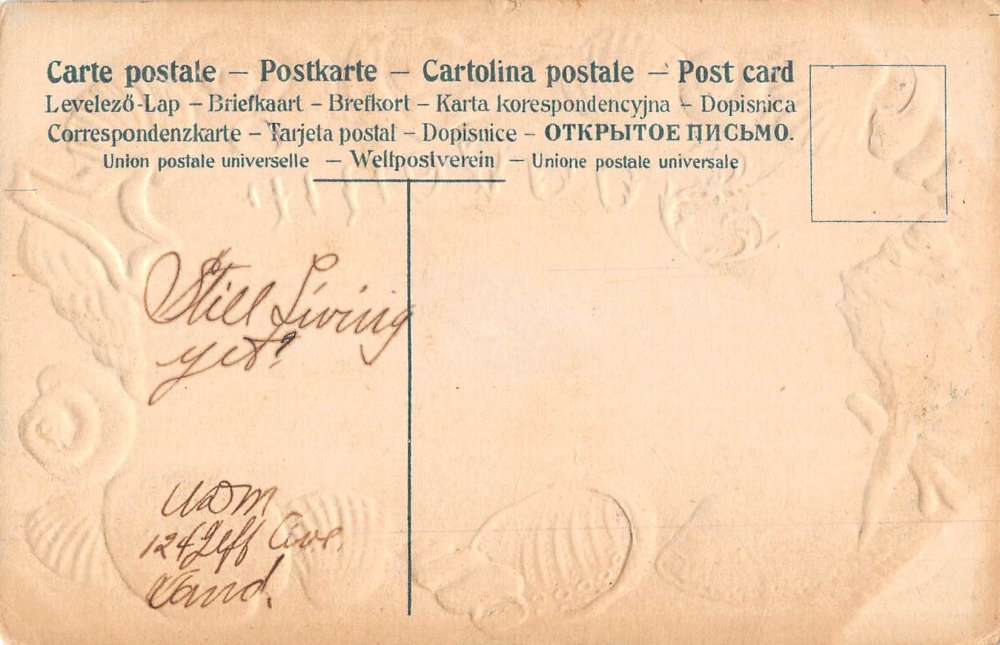 Carte postale — Postkarte — Cartolina postale — Post card
Levelező-Lap — Briefkaart — Brefkort — Karta korespondencyjna — Dopisnica
Correspondenzkarte — Tarjeta postal — Dopisnice — ОТКРЫТОЕ ПИСЬМО.
Union postale universelle — Weltpostverein — Unione postale universale
Still Living
yet?
124 Jeff Ave.